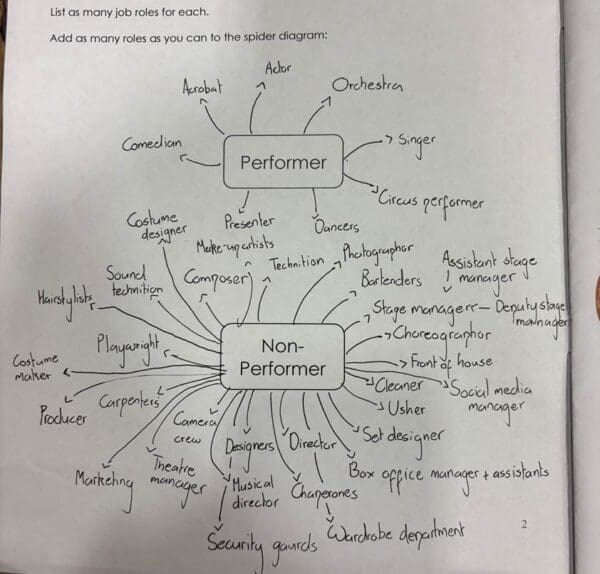 List as many job roles for each.
Add as many roles as you can to the spider diagram:
Actor
Acrobat
Orchestra
Comedian
Performer
Singer
Circus performer
Presenter
Dancers
Costume
designer
Make-up artists
Photographor
Technition
Assistant stage
manager
Sound
technition
Composer
Bartenders
Hairstylists
Stage managerr - Deputy stage
manager
Playwright
Non-
Performer
Choreographor
Front of house
Costume
maker
Cleaner
Social media
manager
Producer
Carpenters
Usher
Camera
crew
Designers
Director
Set designer
Marketing
Theatre
manager
Musical
director
Chaperones
Box office manager + assistants
Security gaurds
Wardrobe department
2